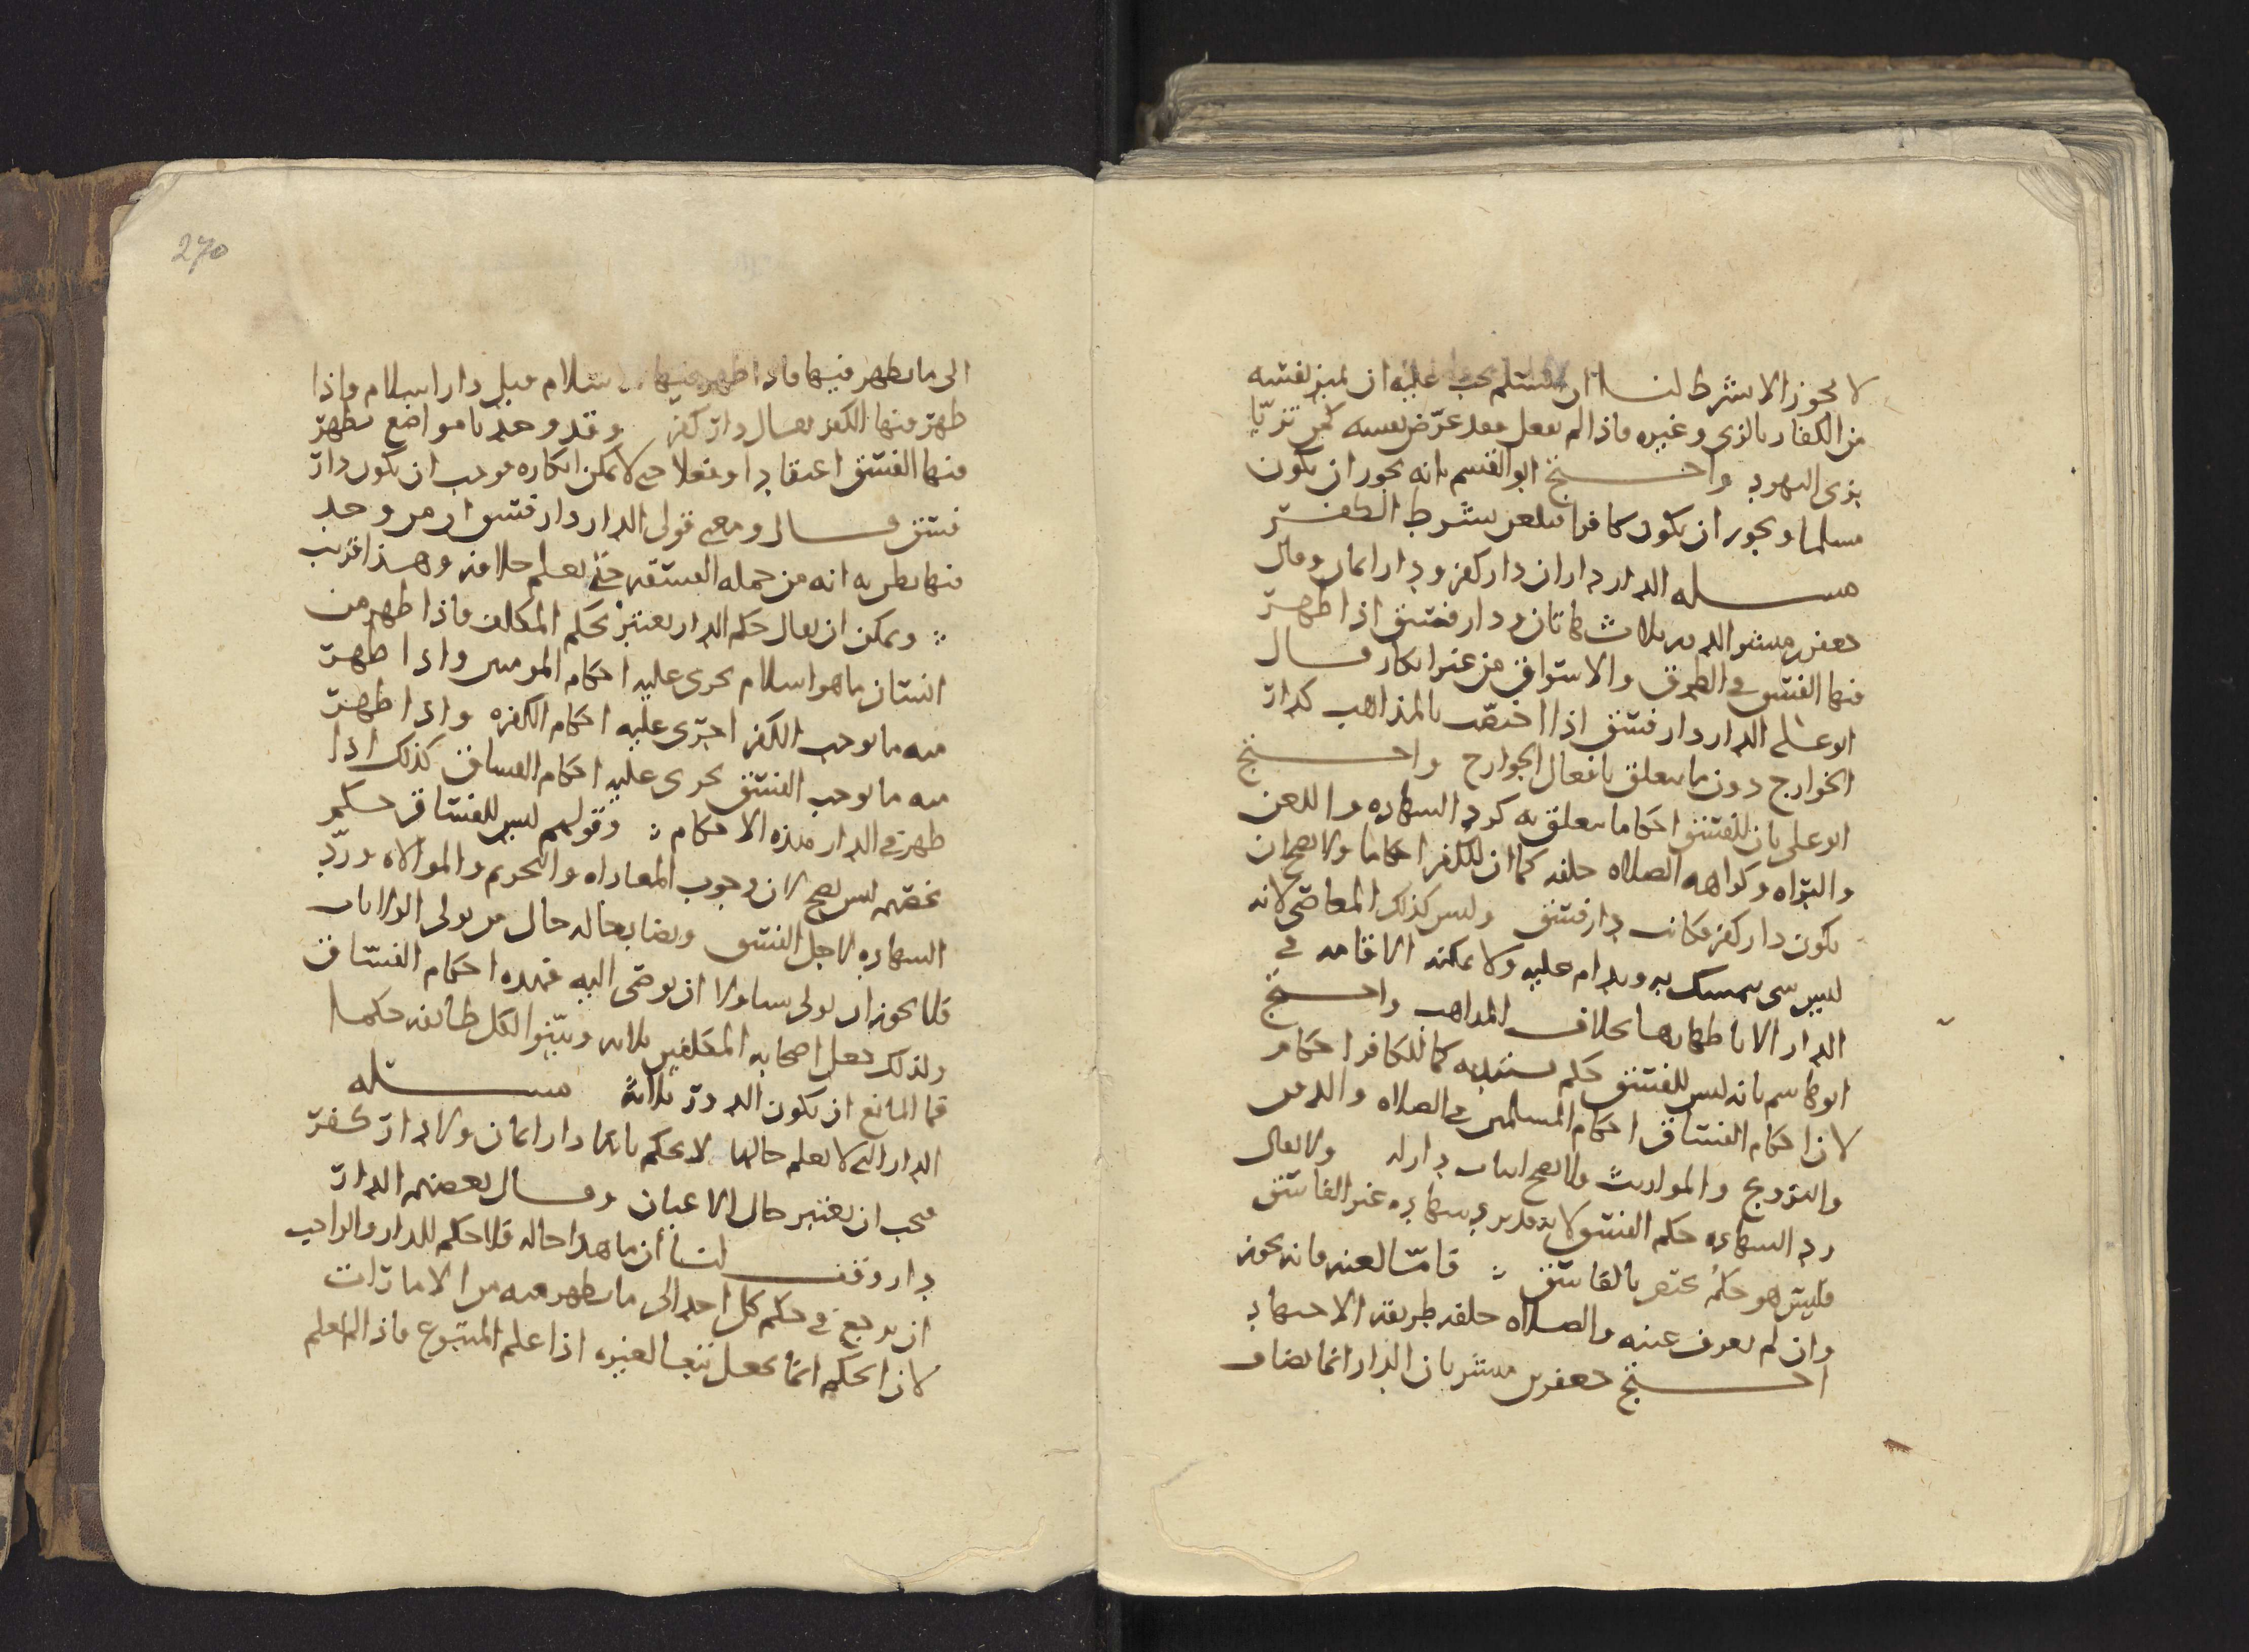 لا يجوز الا بشرط لنا ان المسلم يجب عليه ان يميز نفسه
من الكفار بالزى وغيره فاذا لم يفعل فقد عرّض نفسه كمن تزيّا
بزى اليهود واحتج ابو القسم بانه يجوز ان يكون
مسلما ويجوز ان يكون كافرا فيلعن بشرط الكفر
مسله الدار داران دار كفر ودار ايمان وقال
جعفر بن مبشر الدور ثلاث هاتان ودار فسق اذا ظهر
فيها الفسق في الطرق والاسواق من غير انكار وقال
ابو على الدار دار فسق اذا اختصّت بالمذاهب كدار
الخوارج دون ما يتعلق بافعال الجوارح واحتج
ابو على بان للفسق احكاما يتعلق به كرد الشهاده واللعن
والبراه وكراهه الصلاه خلفه كما ان للكفر احكاما ولا يصح ان
يكون دار كفر فكانت دار فسق وليس كذلك المعاصى لانه
ليس شى يتمسك به ويدام عليه ولا يمكنه الاقامه في
الدار الا باظهارها بخلاف المذاهب واحتج
ابو هاشم بانه ليس للفسق حكم يستبد به كما للكافر احكام
لان احكام الفساق احكام المسلمين في الصلاه والدفن
والتزويج والمواريث فلا يصح اثبات دار له ولا يقال
رد الشهاده حكم الفسق لانه قد يرد شهاده غير الفاسق
فليس هو حكمٌ يختص بالفاسق ؞ فامّا لعنه فانه يجوز
وان لم يعرف عينه والصلاه خلفه طريقه الاجتهاد
احتج جعفر بن مبشر بان الدار انما يضاف
270
الى ما يظهر فيها فاذا ظهر فيها الاسلام قيل دار اسلام واذا
ظهر فيها الكفر يقال دار كفر وقد وجدنا مواضع يظهر
فيها الفسق اعتقادا وفعلا حتى لا يمكن انكاره فوجب ان يكون دار
فسق قال ومعنى قولى الدار دار فسق ان من وجد
فيها يظن به انه من جمله الفسقه حتى يعلم خلافه وهذا قريب
؞ ويمكن ان يقال حكم الدار يعتبر بحكم المكلف فاذا ظهر من
انسان ما هو اسلام يجرى عليه احكام المومنين واذا ظهر
منه ما يوجب الكفر اجرى عليه احكام الكفره واذا ظهر
منه ما يوجب الفسق يجرى عليه احكام الفساق كذلك اذا
ظهر في الدار هذه الاحكام ؞ وقولهم ليس للفساق حكم
يخصّهم ليس يصح لان وجوب المعاداه والتحريم والموالاه وردّ
الشهاده لاجل الفسق وبضا بحاله حال من يولى الولايات
فلا يجوز ان يولى ولا ان يوصى اليه فهذه احكام الفساق
ولذلك جعل اصحابه المكلفين ثلاثه وبيّنوا لكل طائفه حكما
فما المانع ان يكون الدور ثلاثة مسله
الدار التى لا يعلم حالها لا يحكم بانها دار ايمان ولا دار كفر
فيجب ان يعتبر حال الاعيان وقال بعضهم الدار
دار وقف لنا أن ما هذا حاله فلا حكم للدار والواجب
ان يرجع في حكم كل احد الى ما يظهر منه من الامارات
لان الحكم انما يجعل تبعا لغيره اذا علم المتبوع فاذا لم يعلم